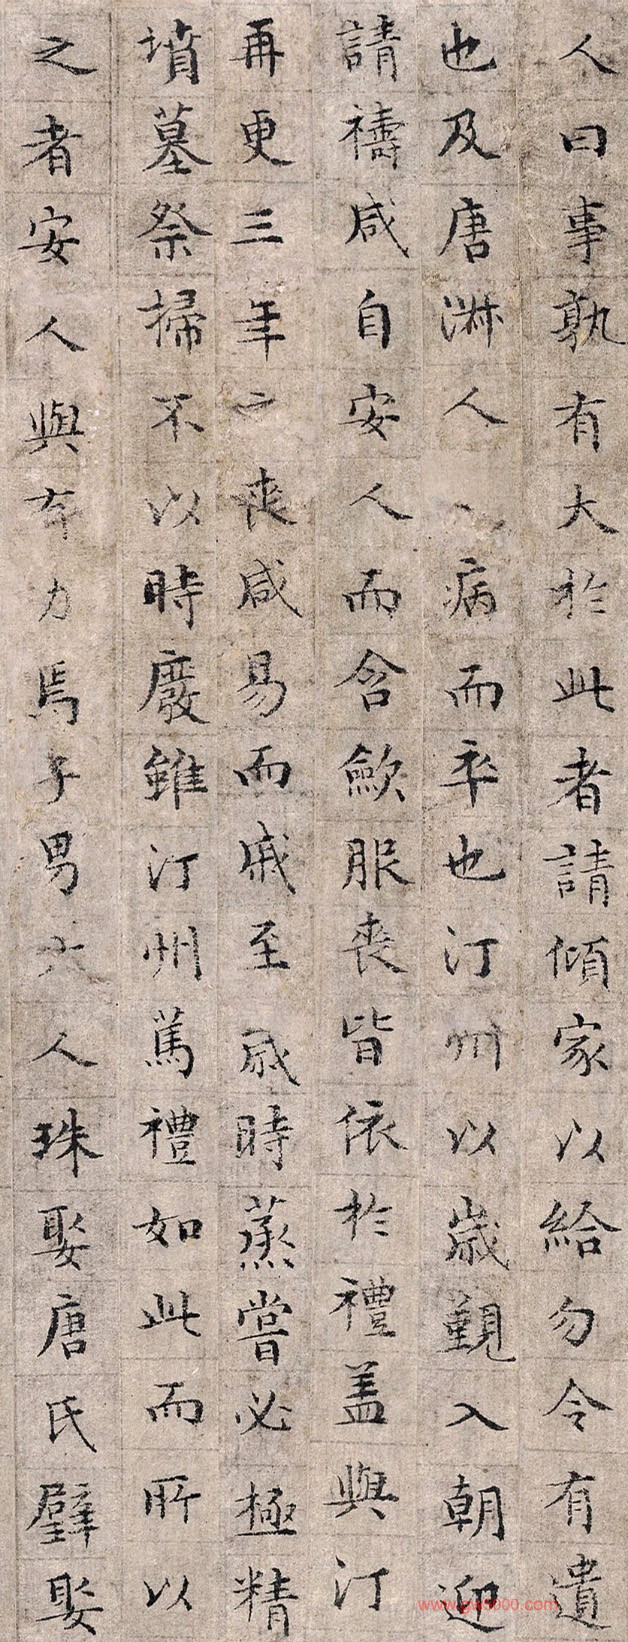 人曰事孰有大於此者請傾家以給勿令有遺
也及唐淋人病而卒也汀州以歲覲入朝迎
請禱咸自安人而含歛服喪皆依於禮蓋與汀
再更三年喪咸易而戚至歲時蒸嘗必極精
墳墓祭掃不以時廢雖汀州篤禮如此而所以
之者安人與有力焉子男六人珠娶唐氏璧娶
www.gw5000.com